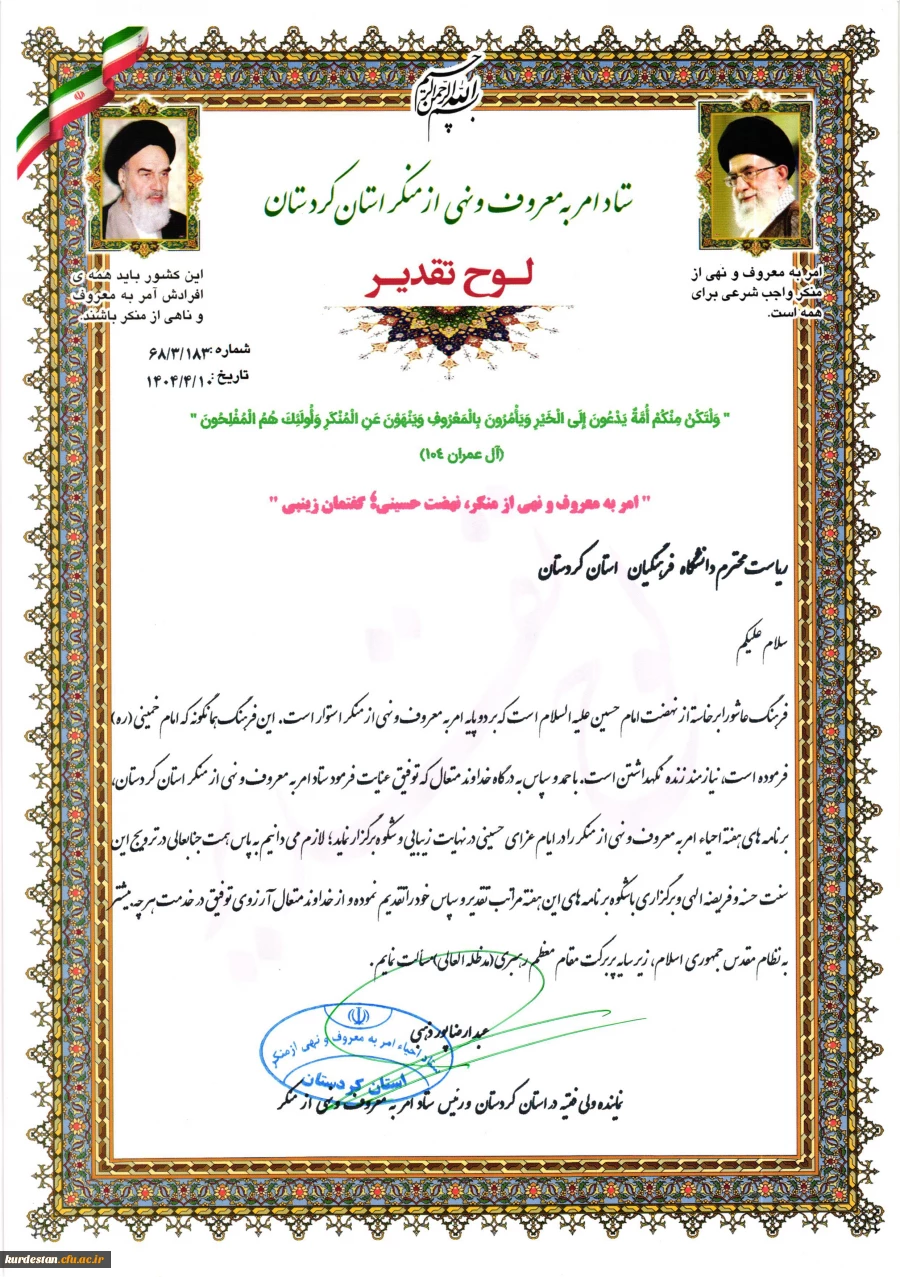 بسم الله الرحمن الرحیم
ستاد امر به معروف و نهی از منکر استان کردستان
لوح تقدیر
امر به معروف و نهی از
منکر واجب شرعی برای
همه است.
این کشور باید همه ی
افرادش آمر به معروف
و ناهی از منکر باشند.
شماره: ۶۸/۳/۱۸۳
تاریخ: ۱۴۰۴/۴/۱۰
" وَلْتَكُنْ مِنْكُمْ أُمَّةٌ يَدْعُونَ إِلَى الْخَيْرِ وَيَأْمُرُونَ بِالْمَعْرُوفِ وَيَنْهَوْنَ عَنِ الْمُنْكَرِ وَأُولَئِكَ هُمُ الْمُفْلِحُونَ "
(آل عمران ۱۰۴)
" امر به معروف و نهی از منکر، نهضت حسینی؛ گفتمان زینبی "
ریاست محترم دانشگاه فرهنگیان استان کردستان
سلام علیکم
فرهنگ عاشورا برخاسته از نهضت امام حسین علیه السلام است که بر دو پایه امر به معروف و نهی از منکر استوار است. این فرهنگ همانگونه که امام خمینی (ره)
فرموده است، نیازمند زنده نگهداشتن است. با حمد و سپاس به درگاه خداوند متعال که توفیق عنایت فرمود ستاد امر به معروف و نهی از منکر استان کردستان،
برنامه های هفته احیاء امر به معروف و نهی از منکر را در ایام عزای حسینی در نهایت زیبایی و شکوه برگزار نماید؛ لازم می دانیم به پاس همت جنابعالی در ترویج این
سنت حسنه و فریضه الهی و برگزاری باشکوه برنامه های این هفته مراتب تقدیر و سپاس خود را تقدیم نموده و از خداوند متعال آرزوی توفیق در خدمت هرچه بیشتر
به نظام مقدس جمهوری اسلام، زیر سایه پربرکت مقام معظم رهبری (مدظله العالی) مسألت نمایم.
عبدارضا پورذهبی
ستاد احیاء امر به معروف و نهی از منکر
استان کردستان
نماینده ولی فقیه در استان کردستان و رئیس ستاد امر به معروف و نهی از منکر
kurdestan.cfu.ac.ir